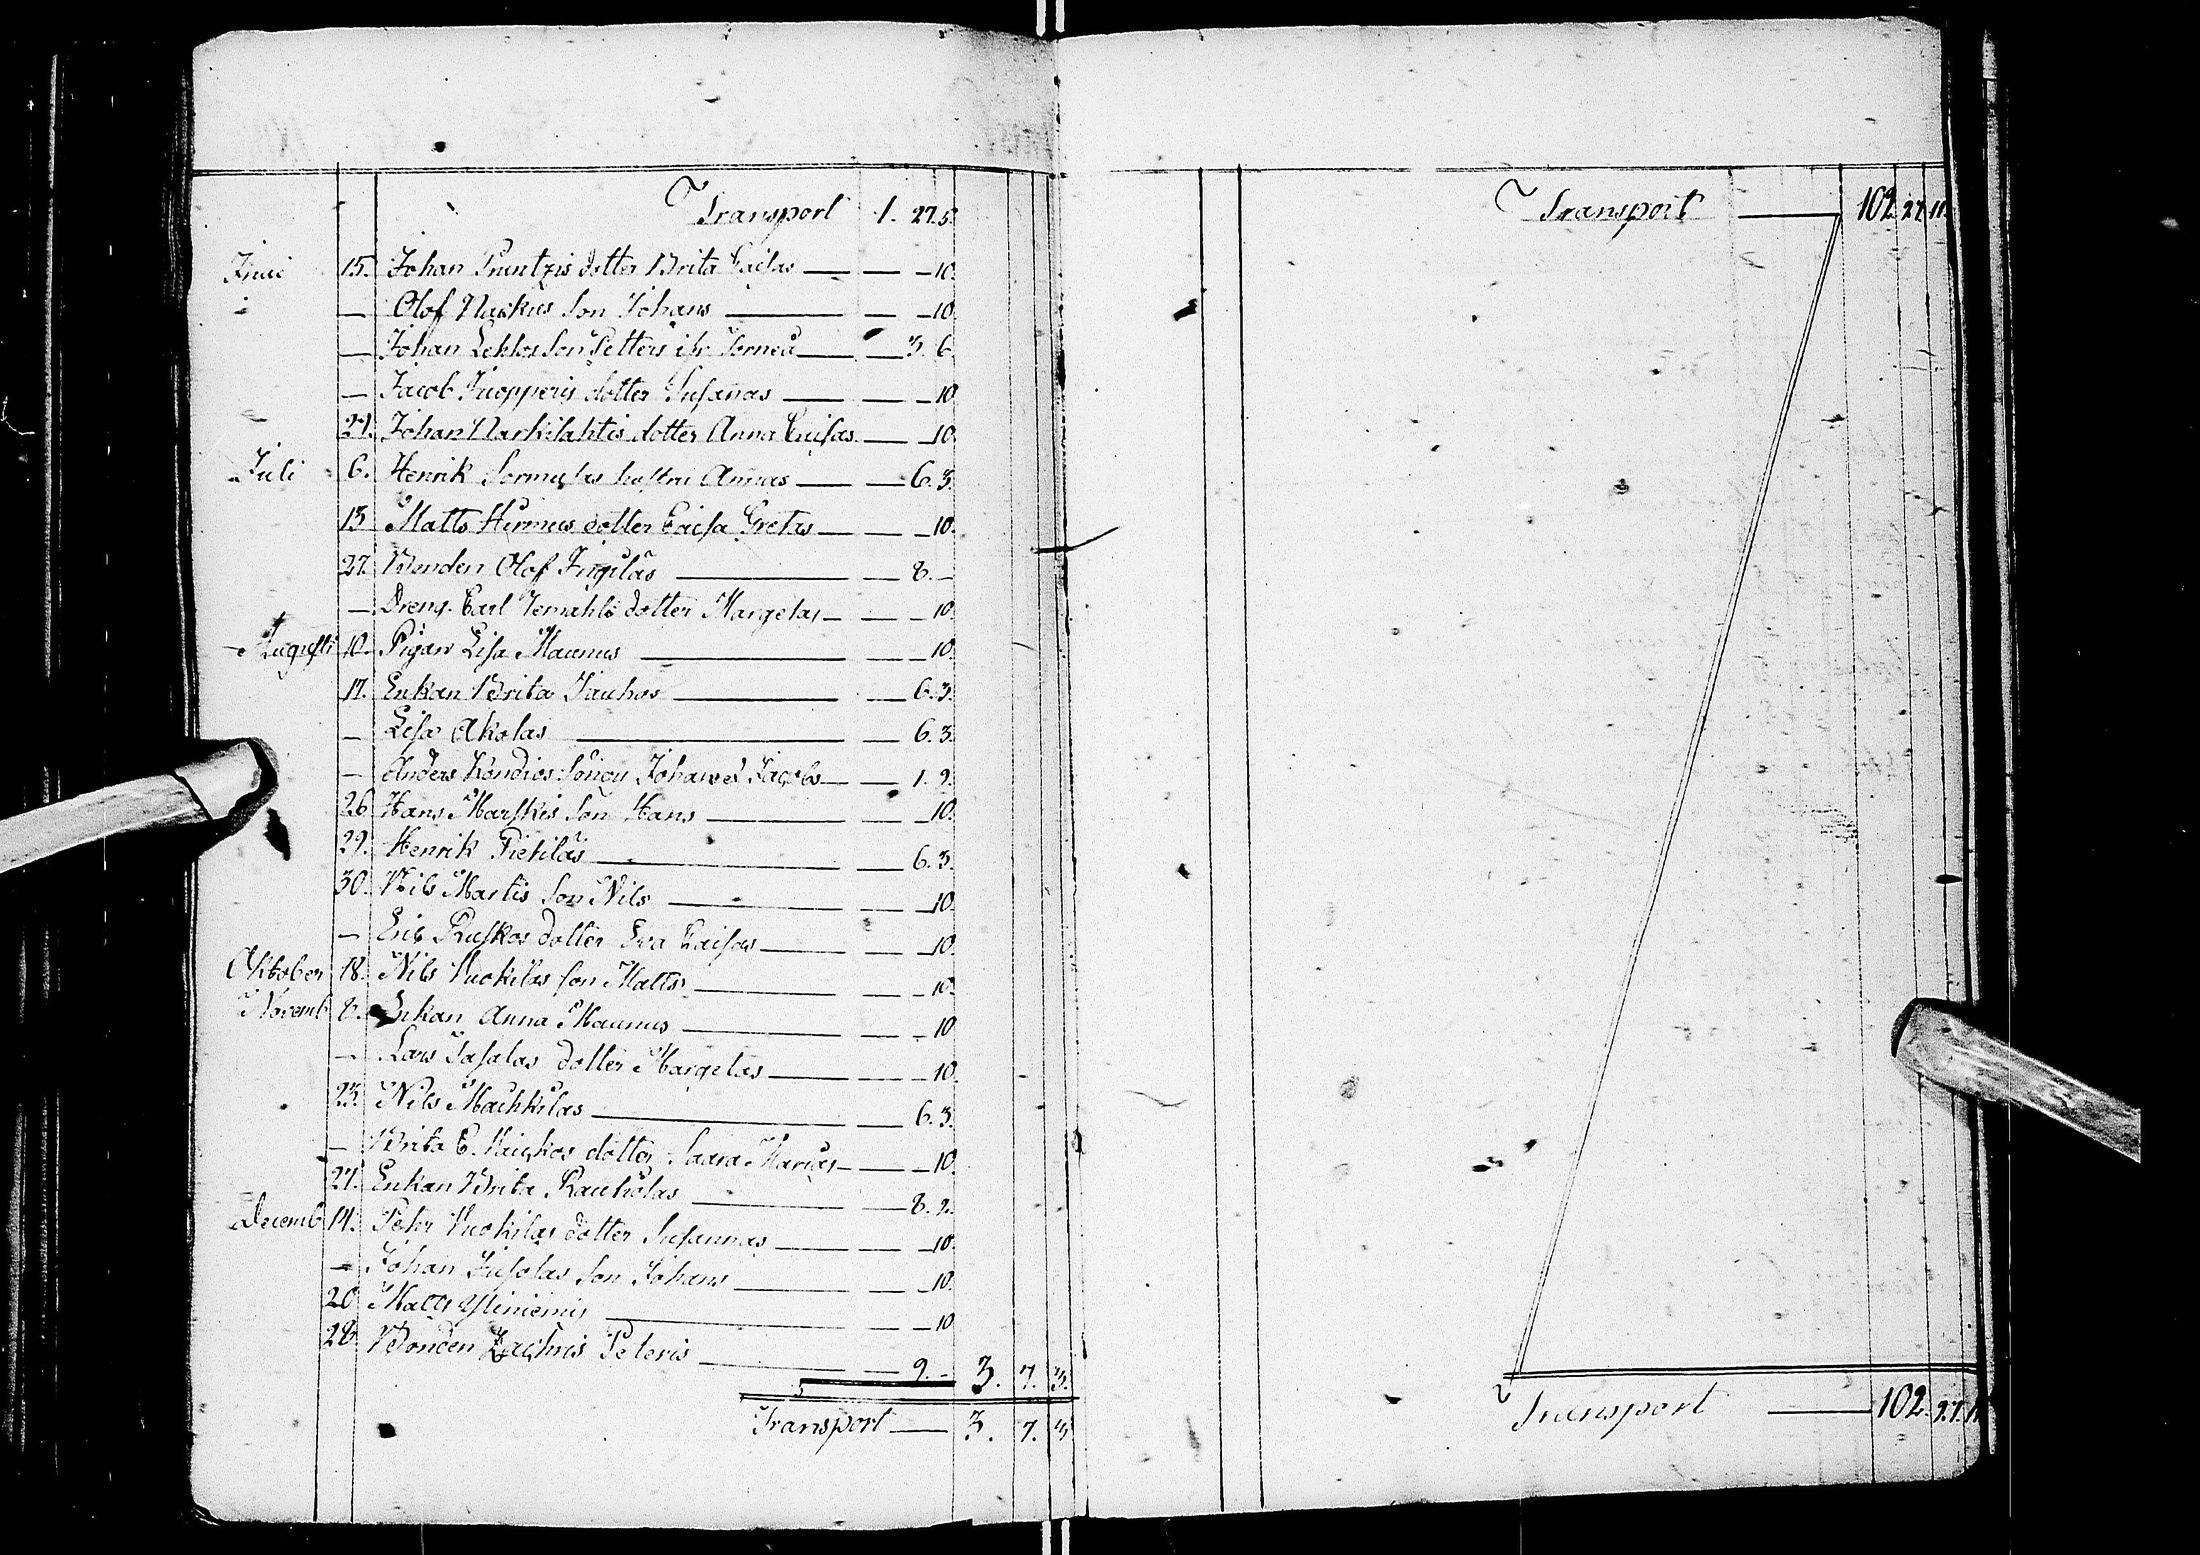 Transport 1. 27. 5.
Junii 15. Johan Runtzis dotter Brita Caisas — — 10.
— Olof Naskus Son Johans — — 10.
— Johan Lehtos Son Petters ifr. Torneå — 3. 6.
— Jacob Juopperis dotter Susanas — — 10
29. Johan Narkilahtis dotter Anna Caisas — 10.
Juli 6. Henrik hustru Annas — 6. 3.
13 Matts Hirmus dotter Caisa Gretas — — 10.
27. Bonden Olof — 8. —
— Dreng. Carl dotter Margetas — — 10.
Augusti 10. Pigan Lisa Maunus — — 10.
17. Enkan Brita Jauhos — 6. 3.
— Lisa Akolas — 6. 3.
— Anders Kondios Söner Johans et Jacobs — 1. 9.
26 Hans Marskis Son Hans — — 10.
29. Henrik Pietilas — 6. 3.
30. Nils Martis Son Nils — — 10.
— Eric Ruskos dotter Eva Caisas — — 10.
Oktober 18. Nils Vuokilas son Matts — — 10.
Novemb. 8. Enkan Anna Maunus — — 10
— Lars dotter Margetas — — 10.
23. Nils — 6. 3.
— Brita C. dotter Saara Marias — — 10.
27. Enkan Brita Rauholas — 8. 2.
Decemb. 14. Pehr Vuokilas dotter Susannas — — 10.
— Johan Jusolas Son Johans — — 10.
26 Matts Yliniemis — — 10
28. Bonden Zachris Peteris — 9. — 3. 7. 3.
Transport — 3. 7. 3
Transport — 102. 27. 11.
Transport — 102. 27. 11